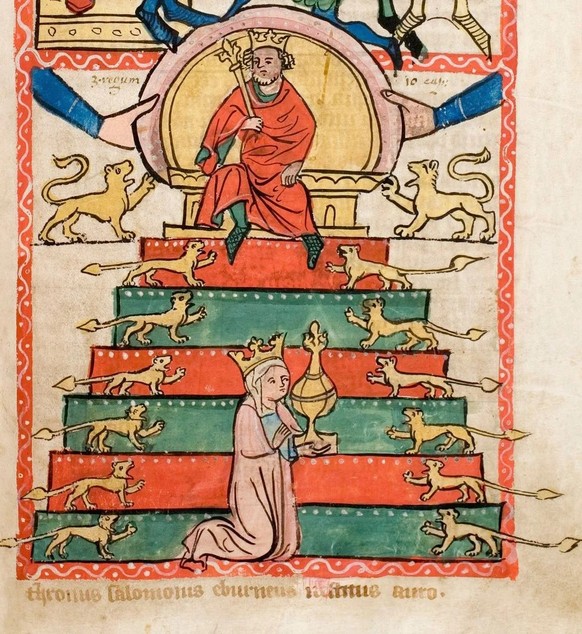 3. regum
10 cap:
thronus salomonis eburneus auro.